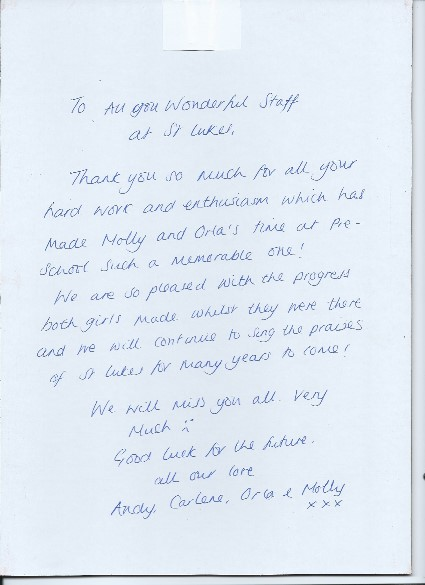 To All you Wonderful Staff
at St Lukes.
Thank you so much for all your
hard work and enthusiasm which has
made Molly and Orla's time at Pre-
School such a memorable one!
We are so pleased with the progress
both girls made whilst they were there
and we will continue to sing the praises
of St Lukes for many years to come!
We will miss you all. Very
Much :(
Good luck for the future.
all our love
Andy, Carlene, Orla & Molly
x x x